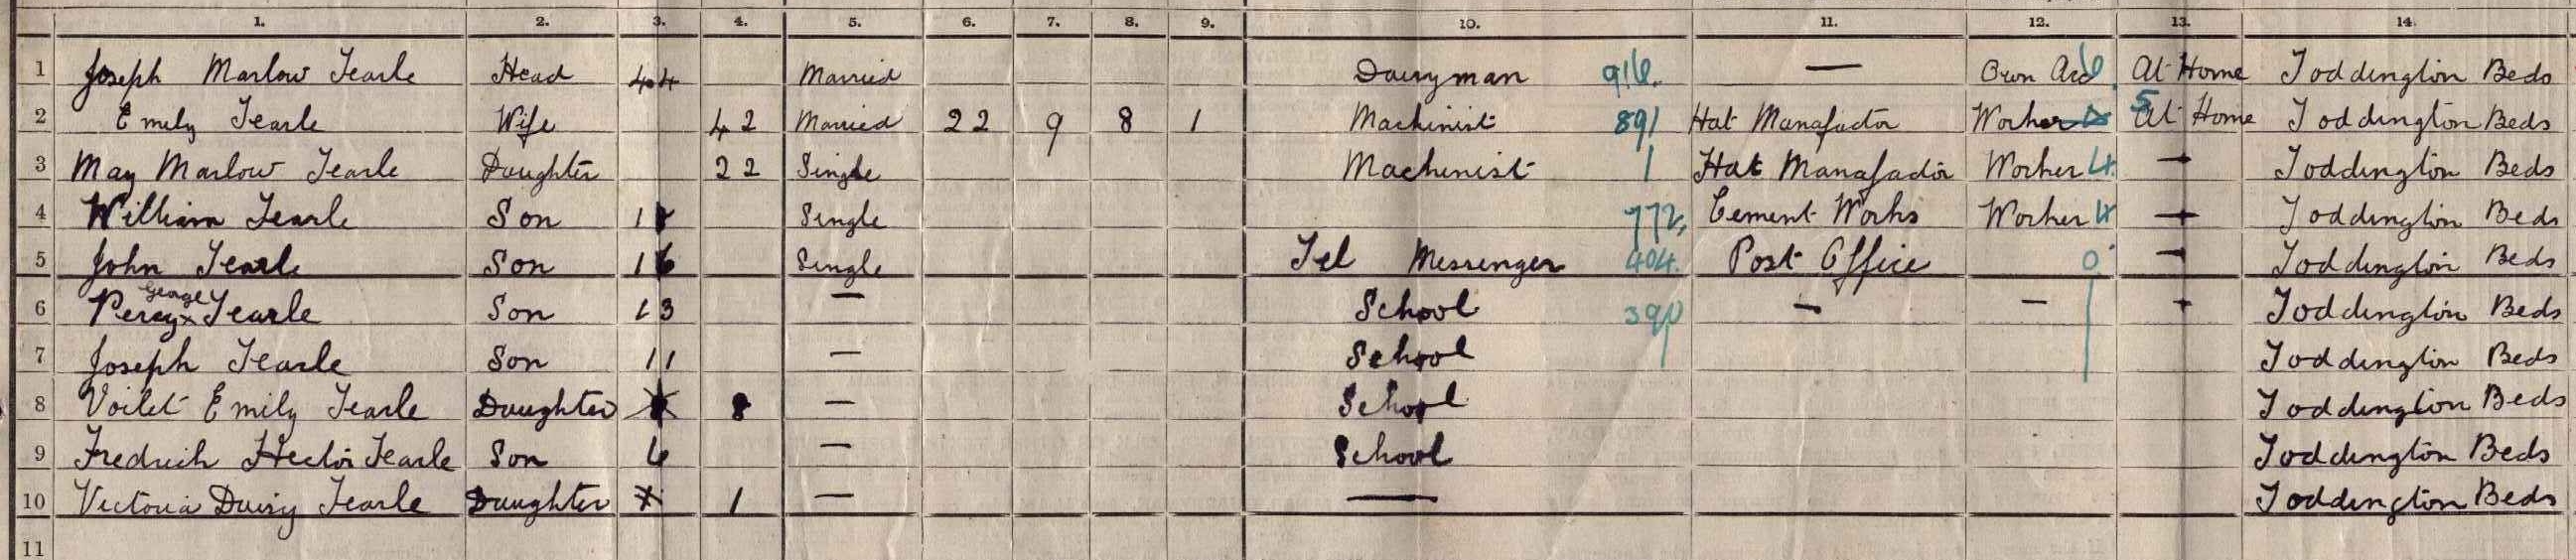 1. 2. 3. 4. 5. 6. 7. 8. 9. 10. 11. 12. 13. 14.
1 Joseph Marlow Tearle Head 44 Married Dairyman 916. — Own Acc 6 At Home Toddington Beds
2 Emily Tearle Wife 42 Married 22 9 8 1 Machinist 891 Hat Manafactor Worker 5 At Home Toddington Beds
3 May Marlow Tearle Daughter 22 Single Machinist 1 Hat Manafactor Worker 4. — Toddington Beds
4 William Tearle Son 18 Single 772, Cement Works Worker 4 — Toddington Beds
5 John Tearle Son 16 Single Tel Messenger 404. Post Office 0 — Toddington Beds
6 Percy George Tearle Son 13 — School 390 — — — Toddington Beds
7 Joseph Tearle Son 11 — School Toddington Beds
8 Voilet Emily Tearle Daughter 8 — School Toddington Beds
9 Fredrick Hector Tearle Son 6 — School Toddington Beds
10 Victoria Daisy Tearle Daughter 1 — — Toddington Beds
11